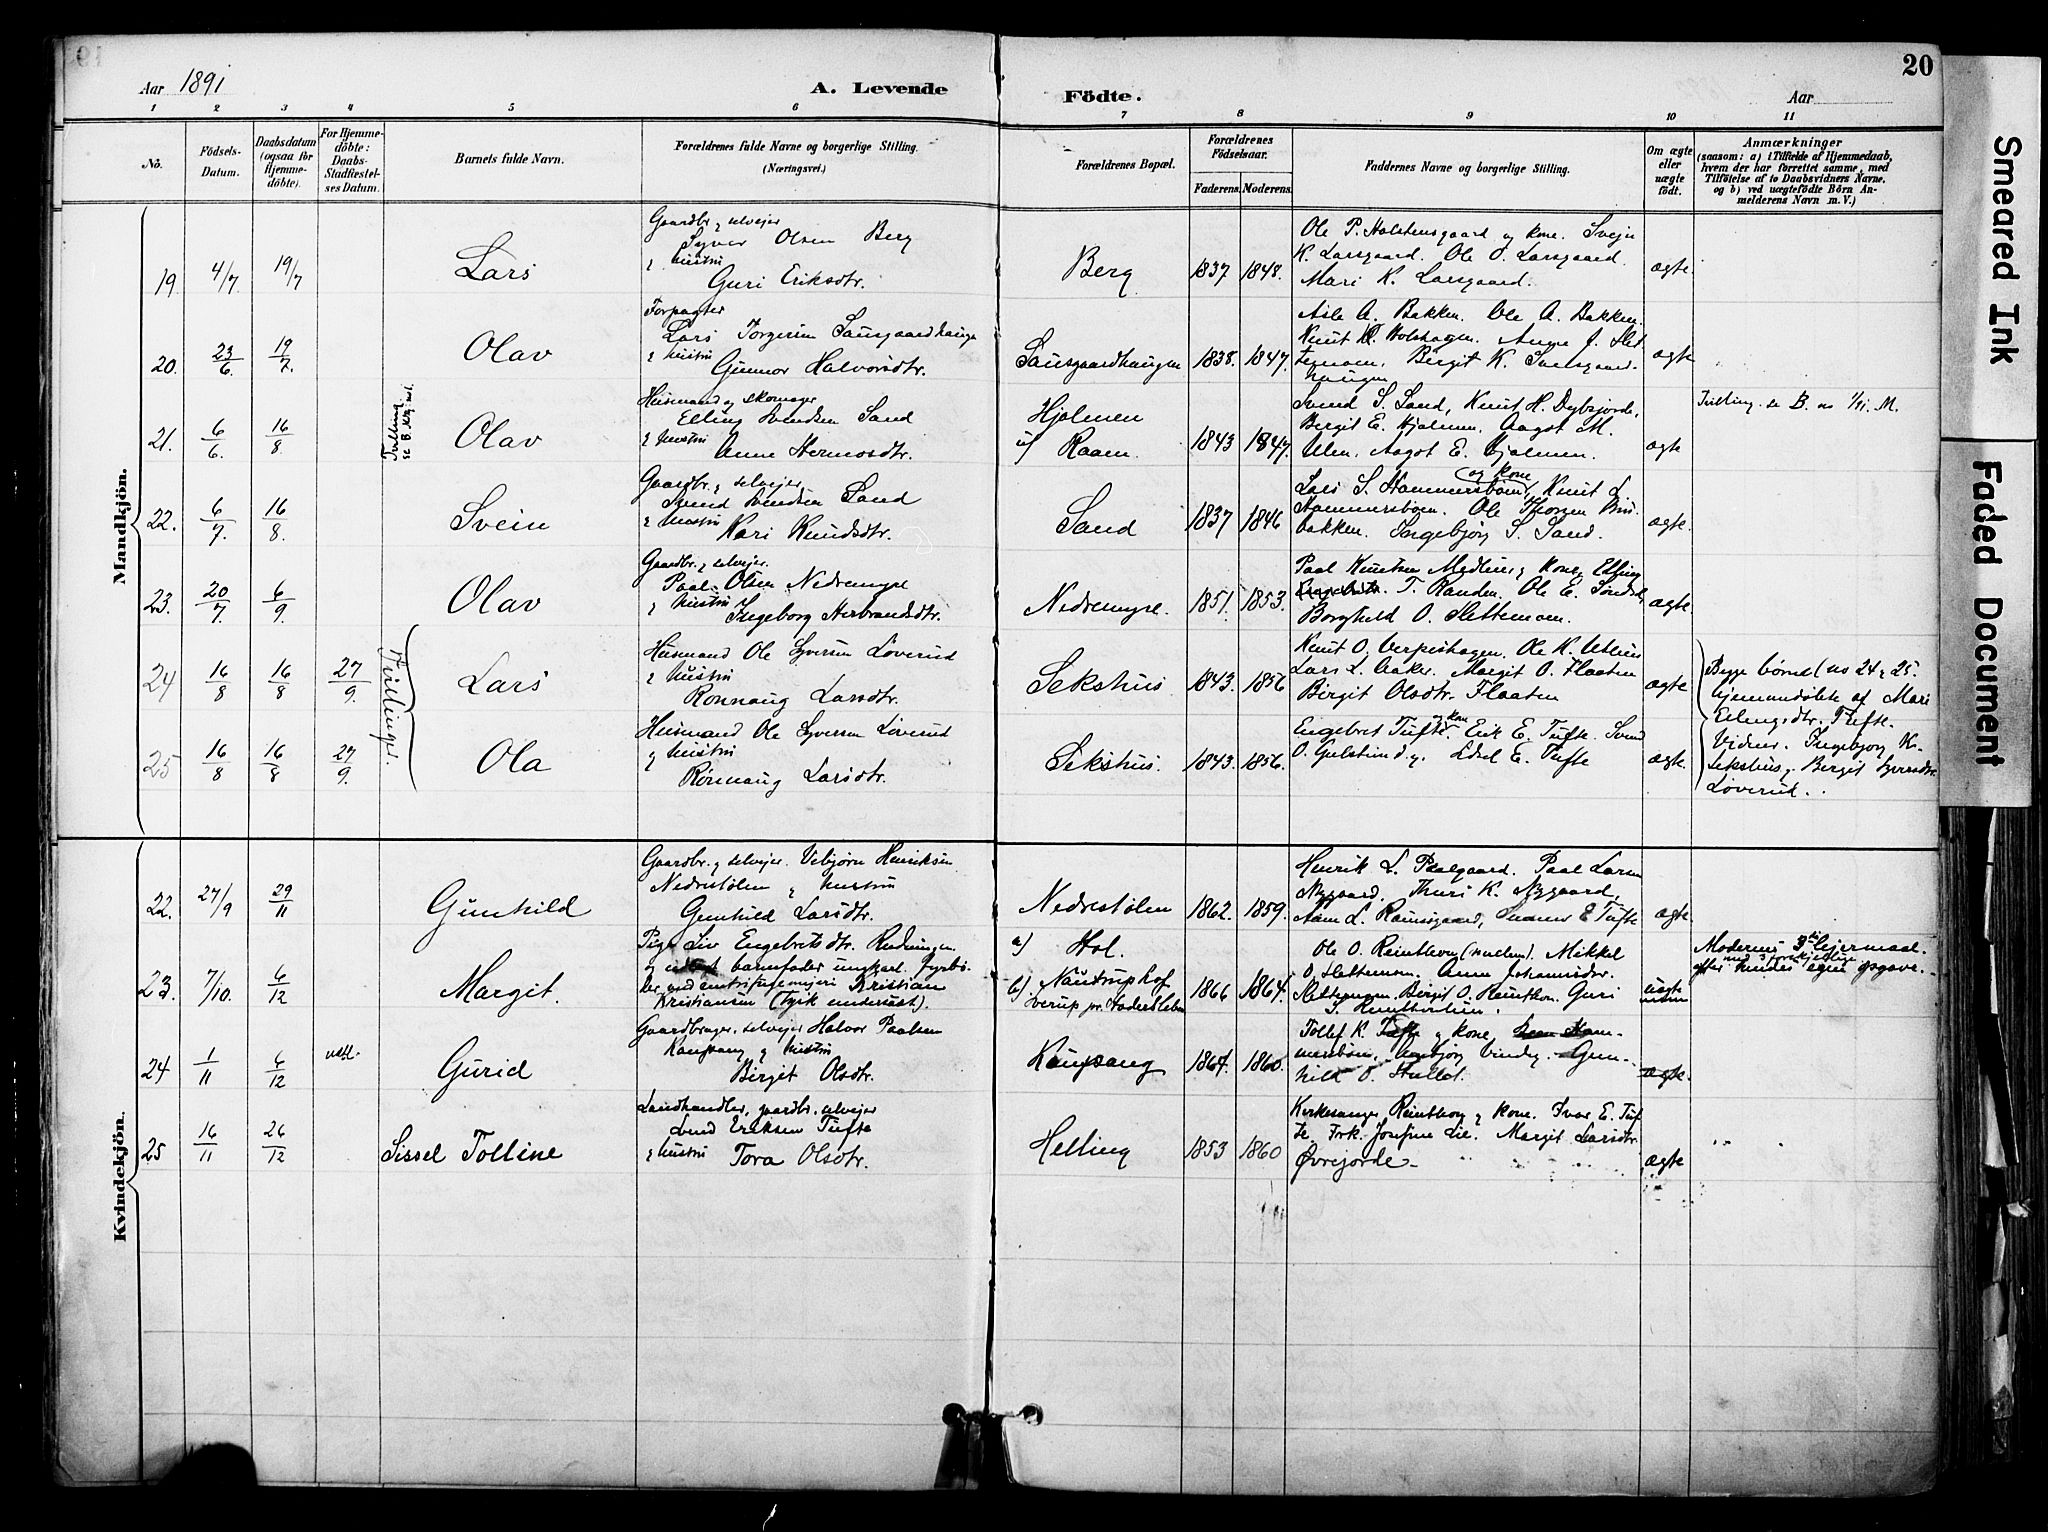 20
Aar 1891
A. Levende Födte.
Aar
1 2 3 4 5 6 7 8 9 10 11
No.
Födsels-Datum.
Daabsdatum (ogsaa for Hjemme-döbte).
For Hjemme-döbte: Daabs-Stadfæstel-ses Datum.
Barnets fulde Navn.
Forældrenes fulde Navne og borgerlige Stilling. (Næringsvei.)
Forældrenes Bopæl.
Forældrenes Födselsaar.
Faderens. Moderens.
Faddernes Navne og borgerlige Stilling.
Om ægte eller uægte födt.
Anmærkninger
(saasom: a) i Tilfælde af Hjemmedaab, hvem der har forrettet samme, med Tilföielse af to Daabsvidners Navne, og b) ved uægtefödte Börn Anmelderens Navn m. V.)
Mandkjön.
19. 4/7. 19/7 Lars
Gaardbr. & selveier
Syver Olsen Berg
& hustru
Guri Eriksdtr.
Berg 1837 1848.
Ole P. Holstensgaard og kone. Svein
K. Larsgaard. Ole O. Larsgaard.
Mari K. Larsgaard.
ægte.
20. 23/6. 19/7. Olav
Forpagter
Lars Torgersen Sausgaardhaugen
& hustru
Gunnor Halvorsdtr.
Sausgaardhaugen 1838. 1847.
Asle A. Bakken. Ole A. Bakken.
Knut K. Holshagen. Anne J. Slet
temoen. Birgit K. Sausgaard-
haugen
ægte
21. 6/6. 16/8. Olav
Tvilling
Husmand og skomager
Elling Svendsen Sand
& hustru
Anne Hermosdtr.
Hjalmen
u/ Raaen. 1843 1847.
Svend S. Sand, Knut H. Dybsjorde,
Bergit E. Hjalmen. Aagot M.
Ulen. Aagot E. Hjalmen.
ægte
Tvilling. se B. no 1/91. M.
22. 6/7. 16/8. Svein
Gaardbr. & selveier
Svend Svendsen Sand
& hustru
Kari Knudsdtr.
Sand 1837 1846
og kone
Lars S. Hammersbøen, Knut L.
Hammersbøen. Ole Thorsen
bakken. Ingebjørg S. Sand.
ægte.
23. 20/7. 6/9. Olav
Gaardbr. & selveier.
Paal Olsen Nedremyre
& hustru
Ingeborg Herbrandsdtr.
Nedremyre. 1851. 1853.
Paal Knutsen Medlien & kone, Elling
T. Randen. Ole E.
Borghild O. Slettemoen.
ægte.
Tvillinger.
24 16/8 16/8 27/9. Lars
Husmand Ole Syversen Løverud
& hustru
Rønnaug Larsdtr.
Sekshus 1843. 1856
Knut O. Verpeshagen. Ole K.
Lars L. Aaker. Margit O. Flaaten
Birgit Olsdtr. Flaaten
ægte
Begge børned no 24 & 25.
hjemmedøbte af Mari
Erlingsdtr. Tufte.
Vidner. Ingebjørg K.
Sekshus & Birgit Syversdtr.
Løverud.
25 16/8 16/8 27/9. Ola
Husmand Ole Syversen Løverud
& hustru
Rønnaug Larsdtr.
Sekshus. 1843. 1856.
og kone
Engebret Tufte. Erik E. Tufte. Svend
O. Gulstund & E. Tufte
ægte.
Kvindekjön.
22. 27/9 29/11 Gunhild
Gaardbr. & selveier. Vebjørn Henriksen
Nedrestølen & hustru
Gunhild Larsdtr.
Nedrestølen 1862. 1859.
Henrik L. Paalgaard. Paal Larsen
Nygaard, Thuri K. Nygaard,
L. Raunsgaard, E Tufte
ægte.
23. 7/10. 6/12 Margit.
Pige Liv Engebretsdtr. Rudningen.
og barnefader ungkarl.
ved centrifugemeieri Kristian
Kristiansen (Tysk undersaat).
a) Hol.
b) Nautrup hof
pr. Hadersleben 1866 1864.
Ole O. Reinthon (mellem). Mikkel
O. Slettemoen. Anne Johannesdtr.
Slettemoen. Birgit O. Reinthon. Guri
S.
uægte
Moderens 3die leiermaal
med 3 forskjellige
efter hendes egen opgave.
24 1/11 6/12 vacc. Gurid
Gaardbruger. selveier Halvor Paalsen
Kaupsang & hustru
Birgit Olsdtr.
Kaupsang 1867. 1860.
Tollef K. Tufte & kone, Ham-
mersbøen. Gun-
hild O.
ægte.
25 16/11 26/12 Sissel Tolline
Landhandler, gaardbr. selveier
Svend Eriksen Tufte
& hustru Tora Olsdtr.
Helling 1853 1860
Kirkesanger Reinthon & kone. Ivar E. Tuf-
te. Frk. Josefine Lie. Margit Larsdtr.
Øvrejorde
ægte
Smeared Ink
Faded Document